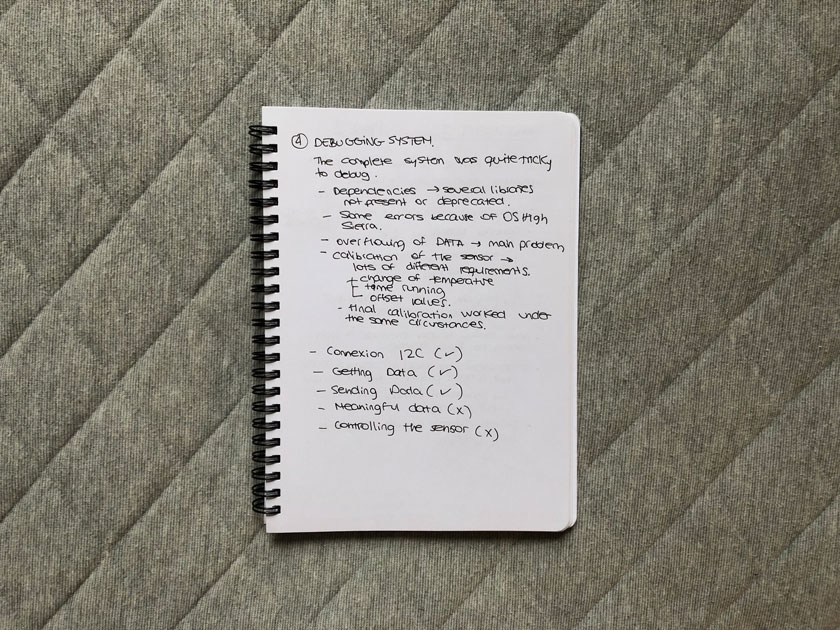 4 DEBUGGING SYSTEM.
The complete system was quite tricky
to debug.
- Dependencies → several libraries
not present or deprecated.
- Some errors because of OS High
Sierra.
- overflowing of DATA → main problem
- calibration of the sensor →
lots of different requirements.
change of temperature
time running
offset values.
- final calibration worked under
the same circunstances.
- Connexion I2C (✓)
- Getting Data (✓)
- Sending Data (✓)
- Meaningful data (x)
- Controlling the sensor (x)